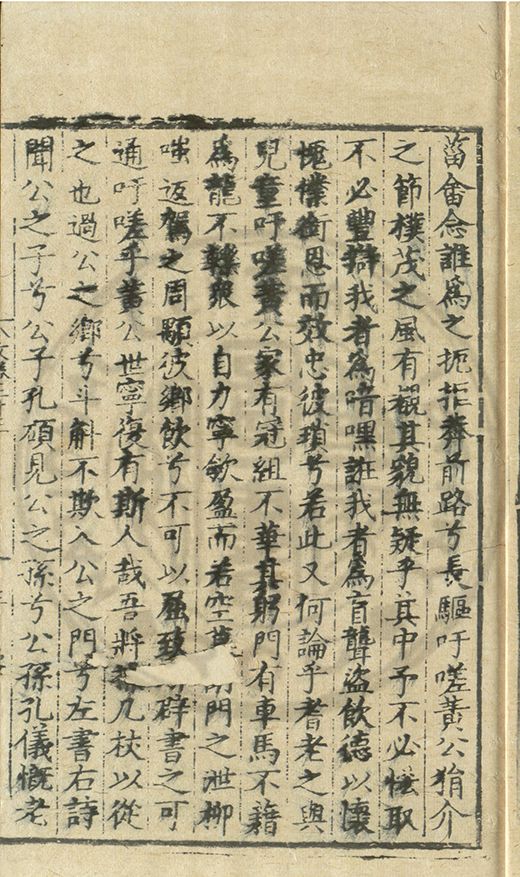 菑畬念誰為之扼拒莽前路兮長驅吁嗟黃公狷介
之節樸茂之風有覩其貌無疑乎其中予不必慳取
不必豐辯我者為喑嘿誑我者為盲聾盜飲德以懷
愧僕銜恩而效忠彼瑣兮若此又何論乎耆老之與
兒童吁嗟黃公家有冠組不華其躬門有車馬不籍
為龍不以自力寧飲盈而若空門之泄柳
嗤返駕之周顒彼鄉飲兮不可以致群書之可
通吁嗟乎黃公世寧復有斯人哉吾將几杖以從
之也過公之鄉兮斗斛不欺入公之門兮左書右詩
聞公之子兮公子孔碩見公之孫兮公孫孔儀慨老